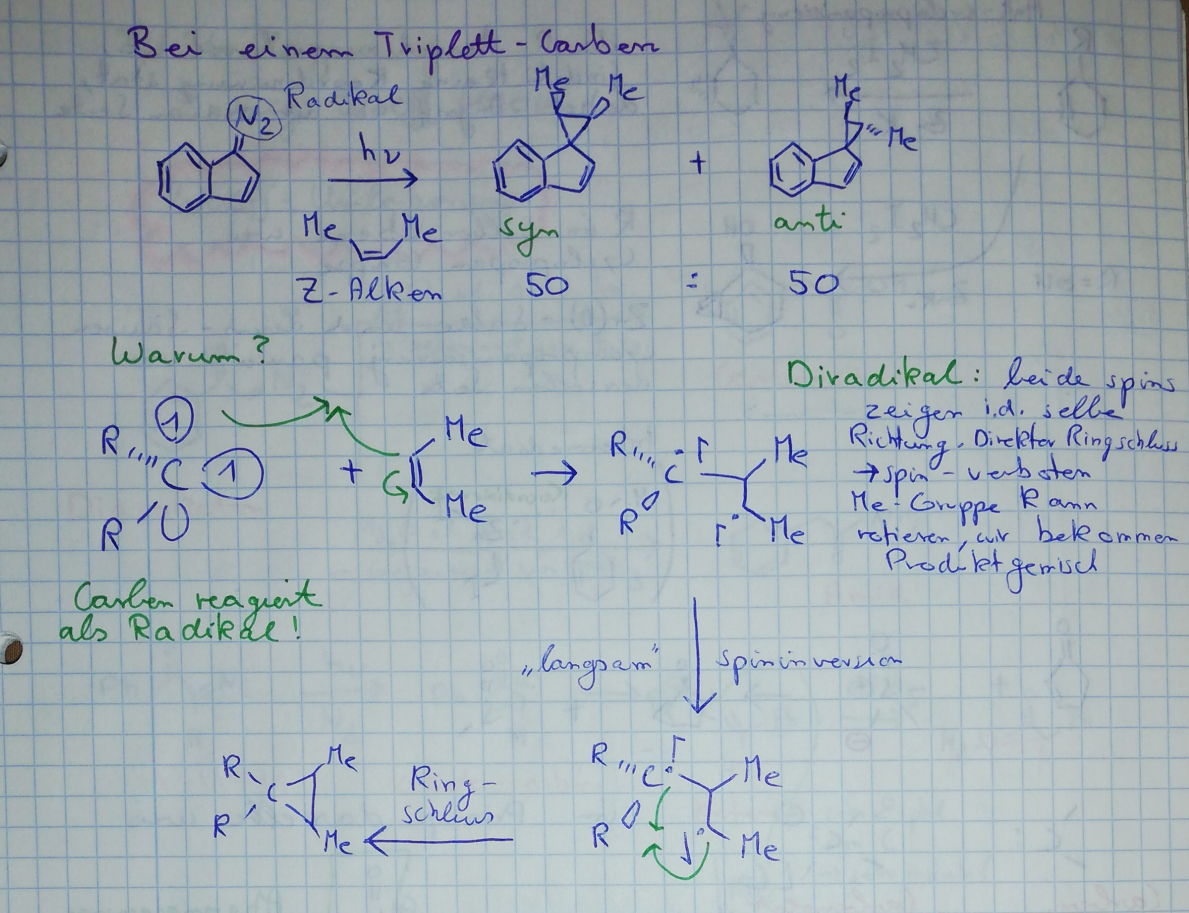 Bei einem Triplett-Carben
N2
Radikal
hν
Me Me
Z-Alken
Me Me
syn
50
+
:
Me
Me
anti
50
Warum?
R
1
C
1
R
+
Me
Me
R
C
R
Me
Me
Diradikal: beide spins
zeigen i.d. selbe
Richtung. Direkter Ringschluss
→ spin-verboten
Me-Gruppe kann
rotieren, wir bekommen
Produktgemisch
Carben reagiert
als Radikal!
„langsam“ spininversion
R
C
R
Me
Me
Ring-
schluss
R
C
R
Me
Me